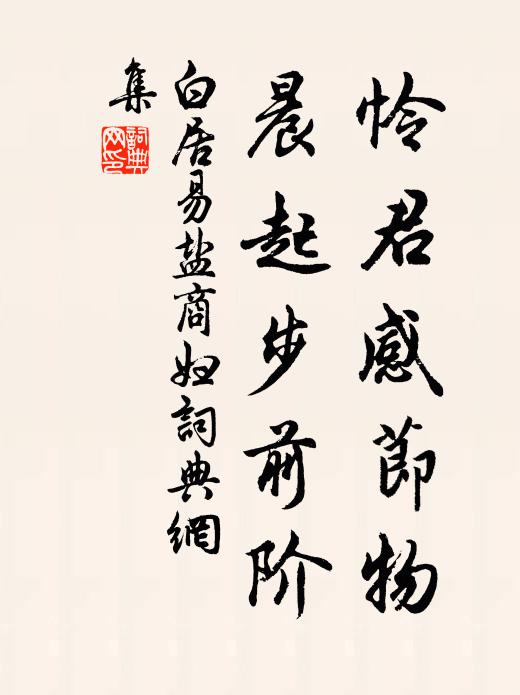 怜君感節物
晨起步前阶
白居易盐商妇詞典網
集
詞典网印